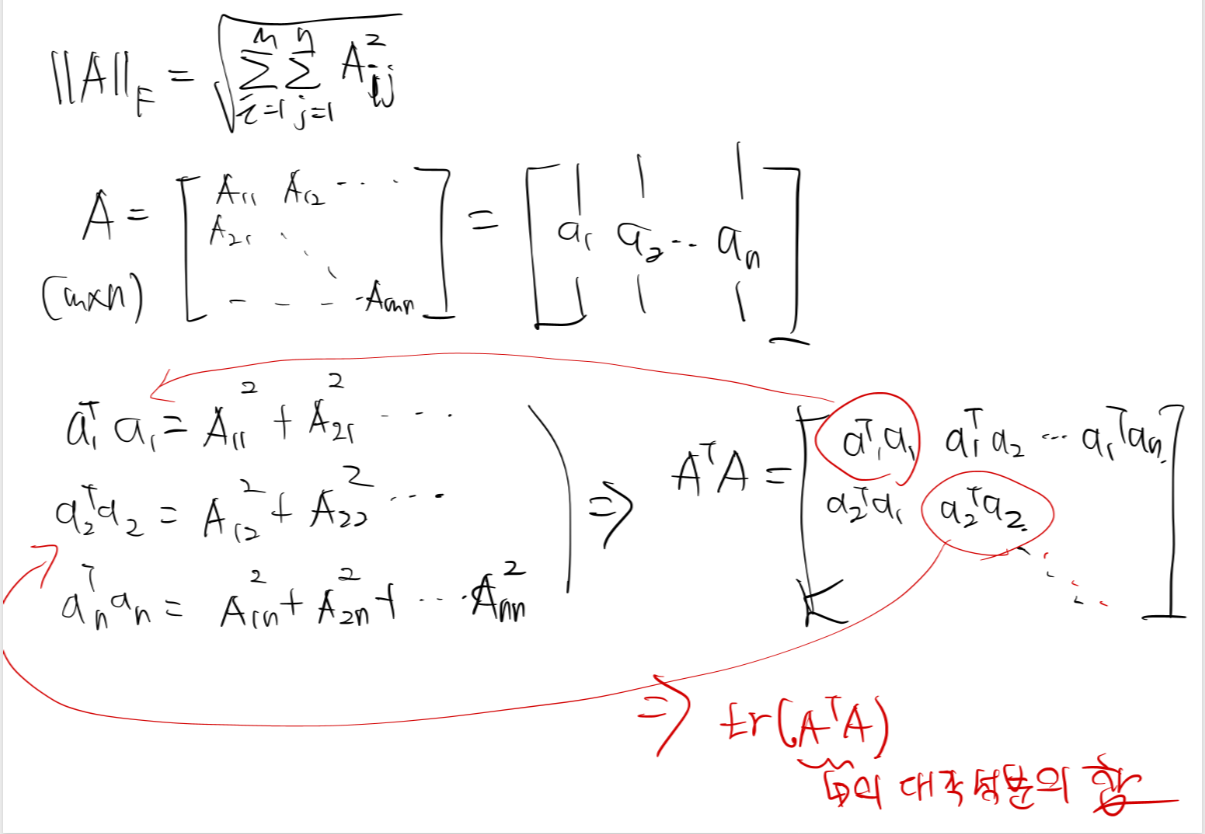 ||A||_F = √(Σ_{i=1}^{m} Σ_{j=1}^{n} A_{ij}^2)
A = [A_{11} A_{12} ⋯ ; A_{21} ⋱ ; - - - A_{mn}] = [a_1 a_2 ⋯ a_n]
(m×n)
a_1^T a_1 = A_{11}^2 + A_{21}^2 ⋯
a_2^T a_2 = A_{12}^2 + A_{22}^2 ⋯
a_n^T a_n = A_{1n}^2 + A_{2n}^2 + ⋯ A_{nn}^2
⇒ A^T A = [a_1^T a_1 a_1^T a_2 ⋯ a_1^T a_n ; a_2^T a_1 a_2^T a_2 ⋱]
⇒ tr(A^T A)
의 대각성분의 합